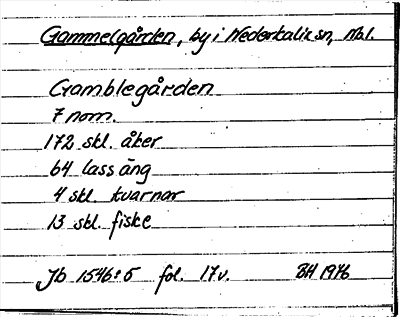 Gammelgården, by i Nederkalix sn, Nbl.
Gamblegården
7 nom.
172 skl. åker
64 lass äng
4 skl. kvarnar
13 skl. fiske
Jb 1546:5 fol. 17v. BH 1976